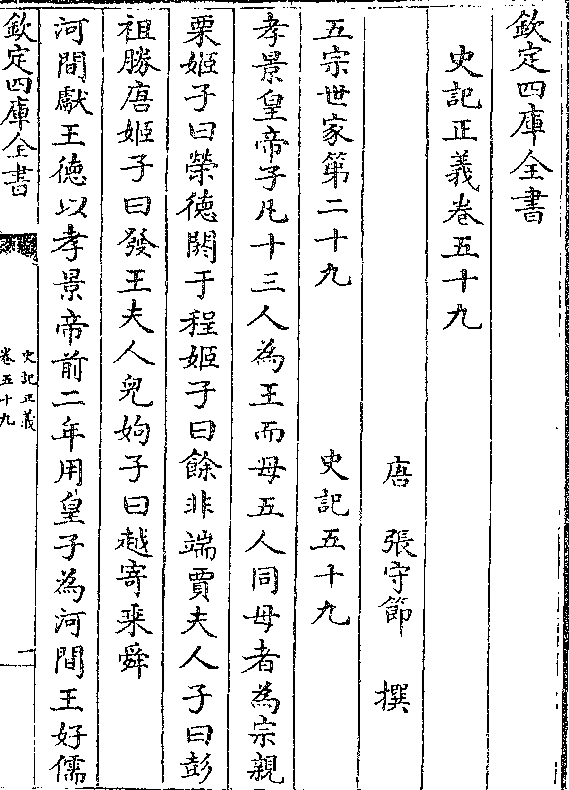 欽定四庫全書
史記正義卷五十九
唐 張守節 撰
五宗世家第二十九 史記五十九
孝景皇帝子凡十三人為王而母五人同母者為宗親
栗姬子曰榮徳閼于程姬子曰餘非端賈夫人子曰彭
祖勝唐姬子曰發王夫人兒姁子曰越寄乗舜
河間獻王徳以孝景帝前二年用皇子為河間王好儒
欽定四庫全書
史記正義
卷五十九
一